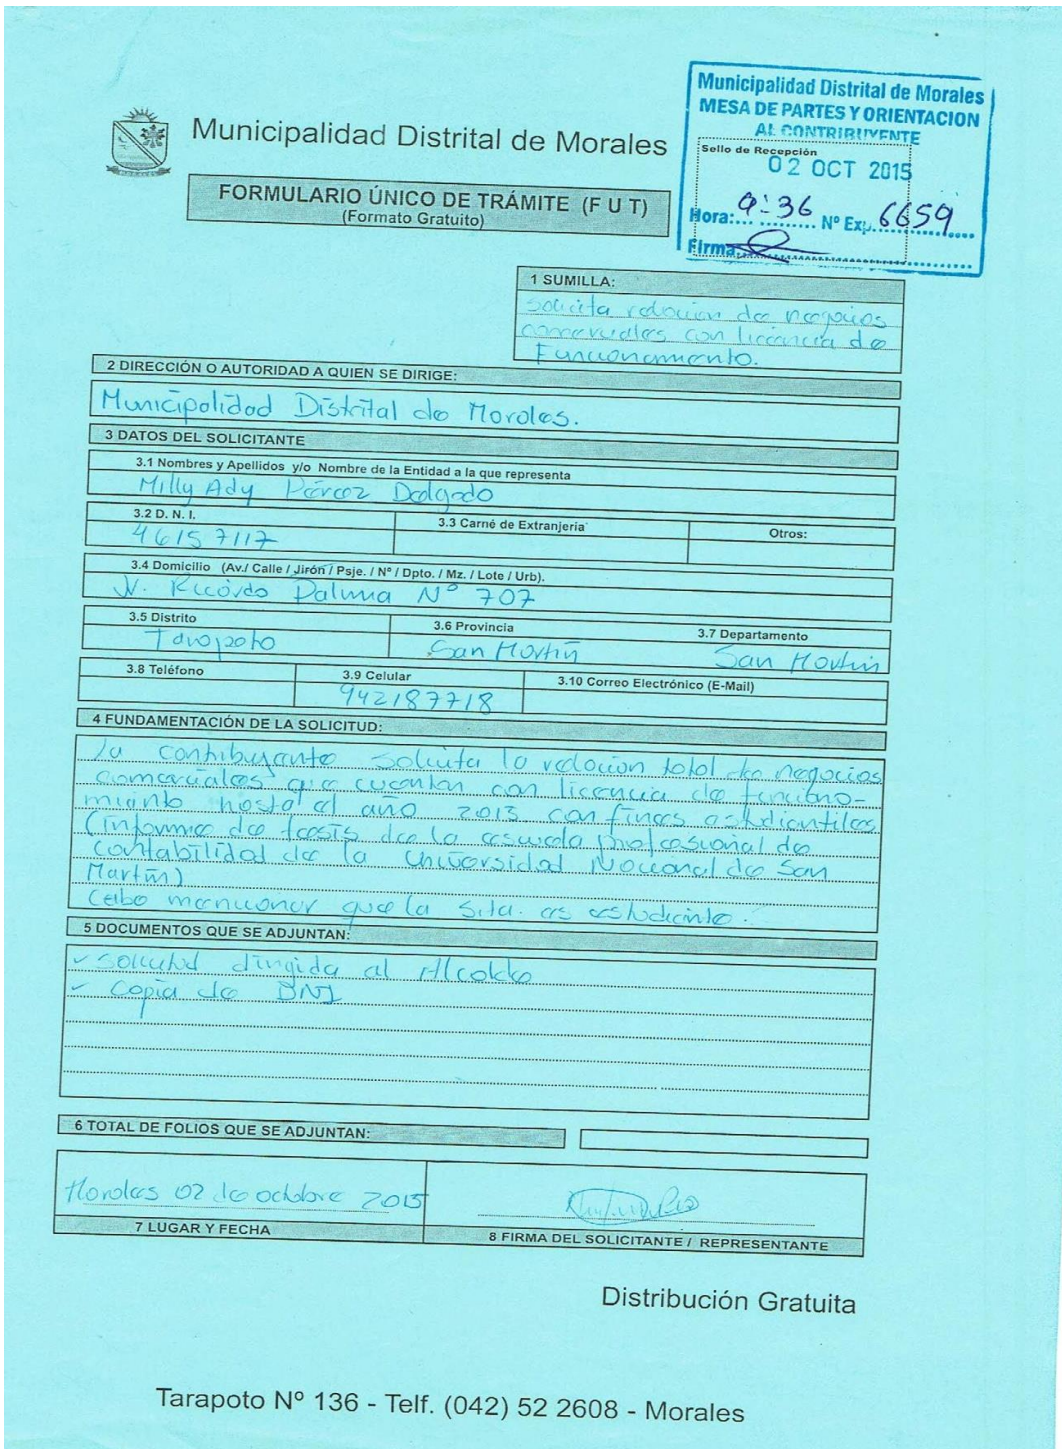 Municipalidad Distrital de Morales
MESA DE PARTES Y ORIENTACION
AL CONTRIBUYENTE
Sello de Recepción
02 OCT 2015
Hora:... 9:36 Nº Exp. 6659
Firma
MORALES
Municipalidad Distrital de Morales
FORMULARIO ÚNICO DE TRÁMITE (F U T)
(Formato Gratuito)
1 SUMILLA:
Solicita relacion de negocios
comerciales con licencia de
Funcionamiento.
2 DIRECCIÓN O AUTORIDAD A QUIEN SE DIRIGE:
Municipalidad Distrital de Morales.
3 DATOS DEL SOLICITANTE
3.1 Nombres y Apellidos y/o Nombre de la Entidad a la que representa
Milly Ady Pérez Delgado
3.2 D. N. I. 3.3 Carné de Extranjería Otros:
46157117
3.4 Domicilio (Av./ Calle / Jirón / Psje. / Nº / Dpto. / Mz. / Lote / Urb).
Jr. Ricardo Palma Nº 707
3.5 Distrito 3.6 Provincia 3.7 Departamento
Tarapoto San Martín San Martin
3.8 Teléfono 3.9 Celular 3.10 Correo Electrónico (E-Mail)
942187718
4 FUNDAMENTACIÓN DE LA SOLICITUD:
La contibuyente solicita la relacion total de negocios
comerciales que cuentan con licencia de funciona-
miento hasta el año 2015 con fines estudiantiles
(informe de tesis de la escuela profesional de
contabilidad de la Universidad Nacional de San
Martín)
Cabe mencionar que la Srta. es estudiante.
5 DOCUMENTOS QUE SE ADJUNTAN:
✓ Solicitud dirigida al Alcalde
✓ Copia de DNI
6 TOTAL DE FOLIOS QUE SE ADJUNTAN:
Morales 02 de octubre 2015
7 LUGAR Y FECHA 8 FIRMA DEL SOLICITANTE / REPRESENTANTE
Distribución Gratuita
Tarapoto Nº 136 - Telf. (042) 52 2608 - Morales